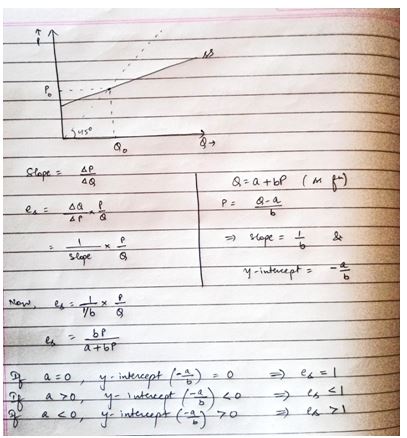 ↑
P
S
P₀
45°
Q₀
Q→
Slope = ΔP/ΔQ
eₛ = ΔQ/ΔP × P/Q
= 1/slope × P/Q
Q = a + bP
P = Q-a/b
⇒ slope = 1/b &
y-intercept = -a/b
Now, eₛ = 1/1/b × P/Q
eₛ = bP/a+bP
If a=0, y-intercept (-a/b) = 0 ⇒ eₛ = 1
If a>0, y-intercept (-a/b) <0 ⇒ eₛ <1
If a<0, y-intercept (-a/b) >0 ⇒ eₛ >1